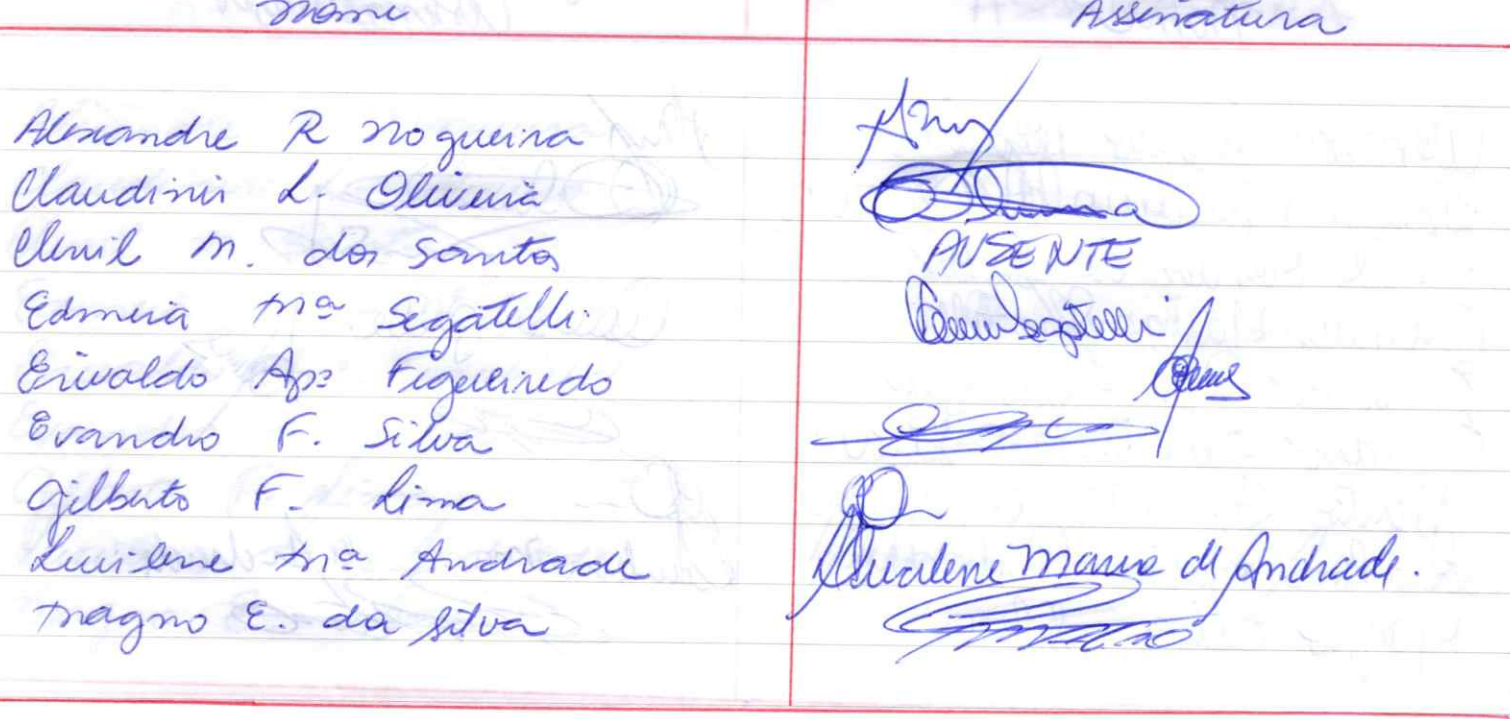 Nome Assinatura
Alexandre R Nogueira
Claudinir L. Oliveira
Clenil M. dos Santos AUSENTE
Edmeia Mª Segatelli Segatelli
Erivaldo Apº Figueiredo
Evandro F. Silva
Gilberto F. Lima
Lucilene Mª Andrade Lucilene Maria de Andrade.
Magno E. da Silva